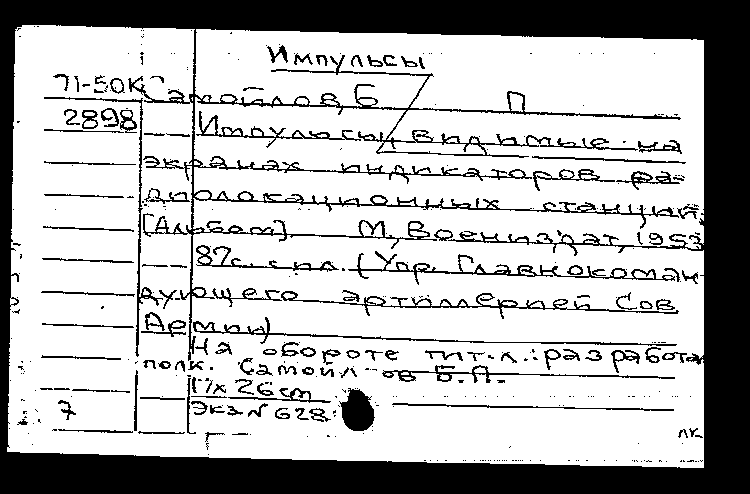 Импульсы
71-50К Самойлов, Б П
2898 Импульсы, видимые на
экранах индикаторов ра-
диолокационных станций.
[Альбом] М., Воениздат, 1953
87с. с ил. (Упр. Главнокоман-
дующего артиллерией Сов
Армии)
На обороте тит.л.: разработал
полк. Самойлов Б.П.
17х26cm
7 Экз N 628
лк